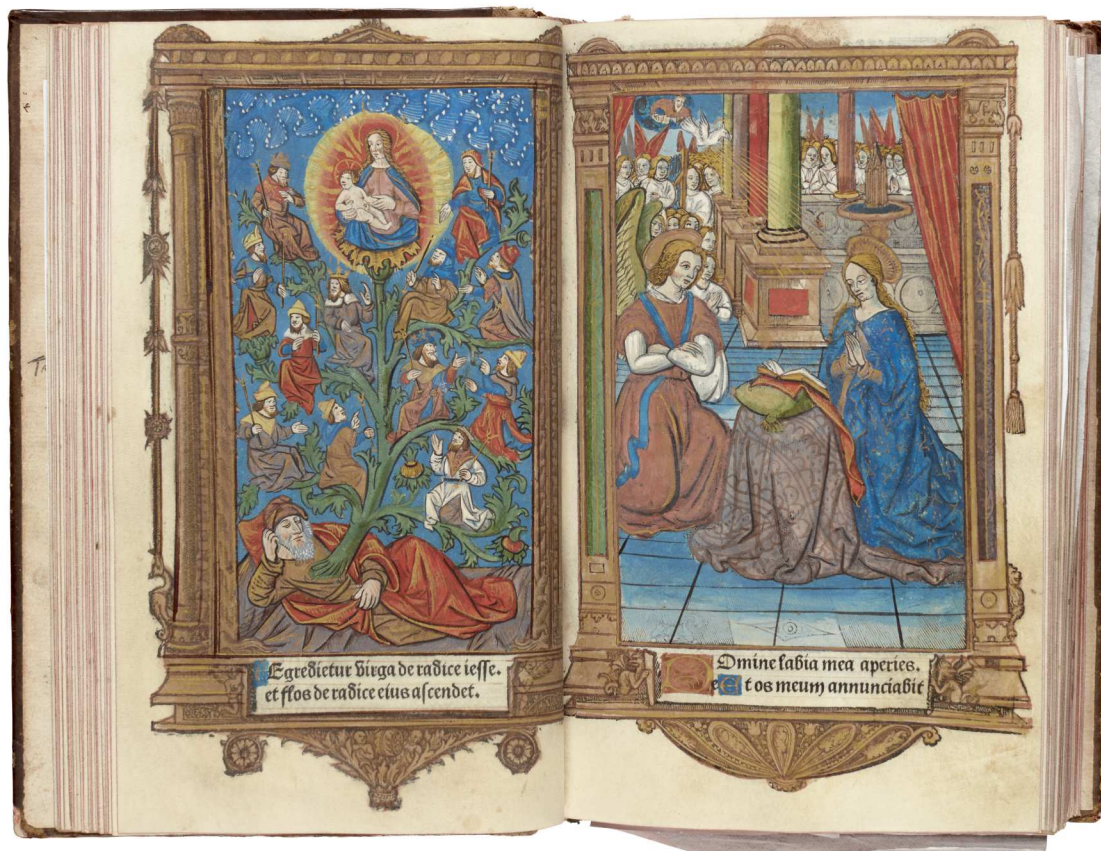 Egredietur virga de radice iesse.
et flos de radice eius ascendet.
Omine labia mea aperies.
Et os meum annunciabit